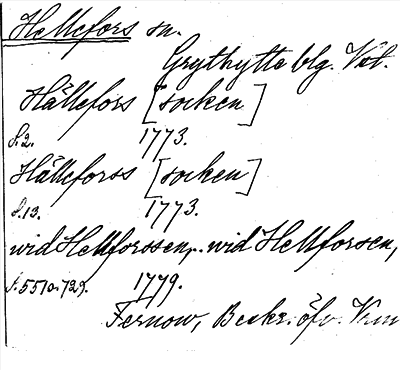 Hellefors sn.
Grythytte blg. Vstl.
Hällefors [socken]
S. 2. 1773.
Hälleforss [socken]
S. 13. 1773.
wid Hellforssen, wid Hellforsen,
S. 551 o. 729. 1779.
Fernow, Beskr. öfv. Värm